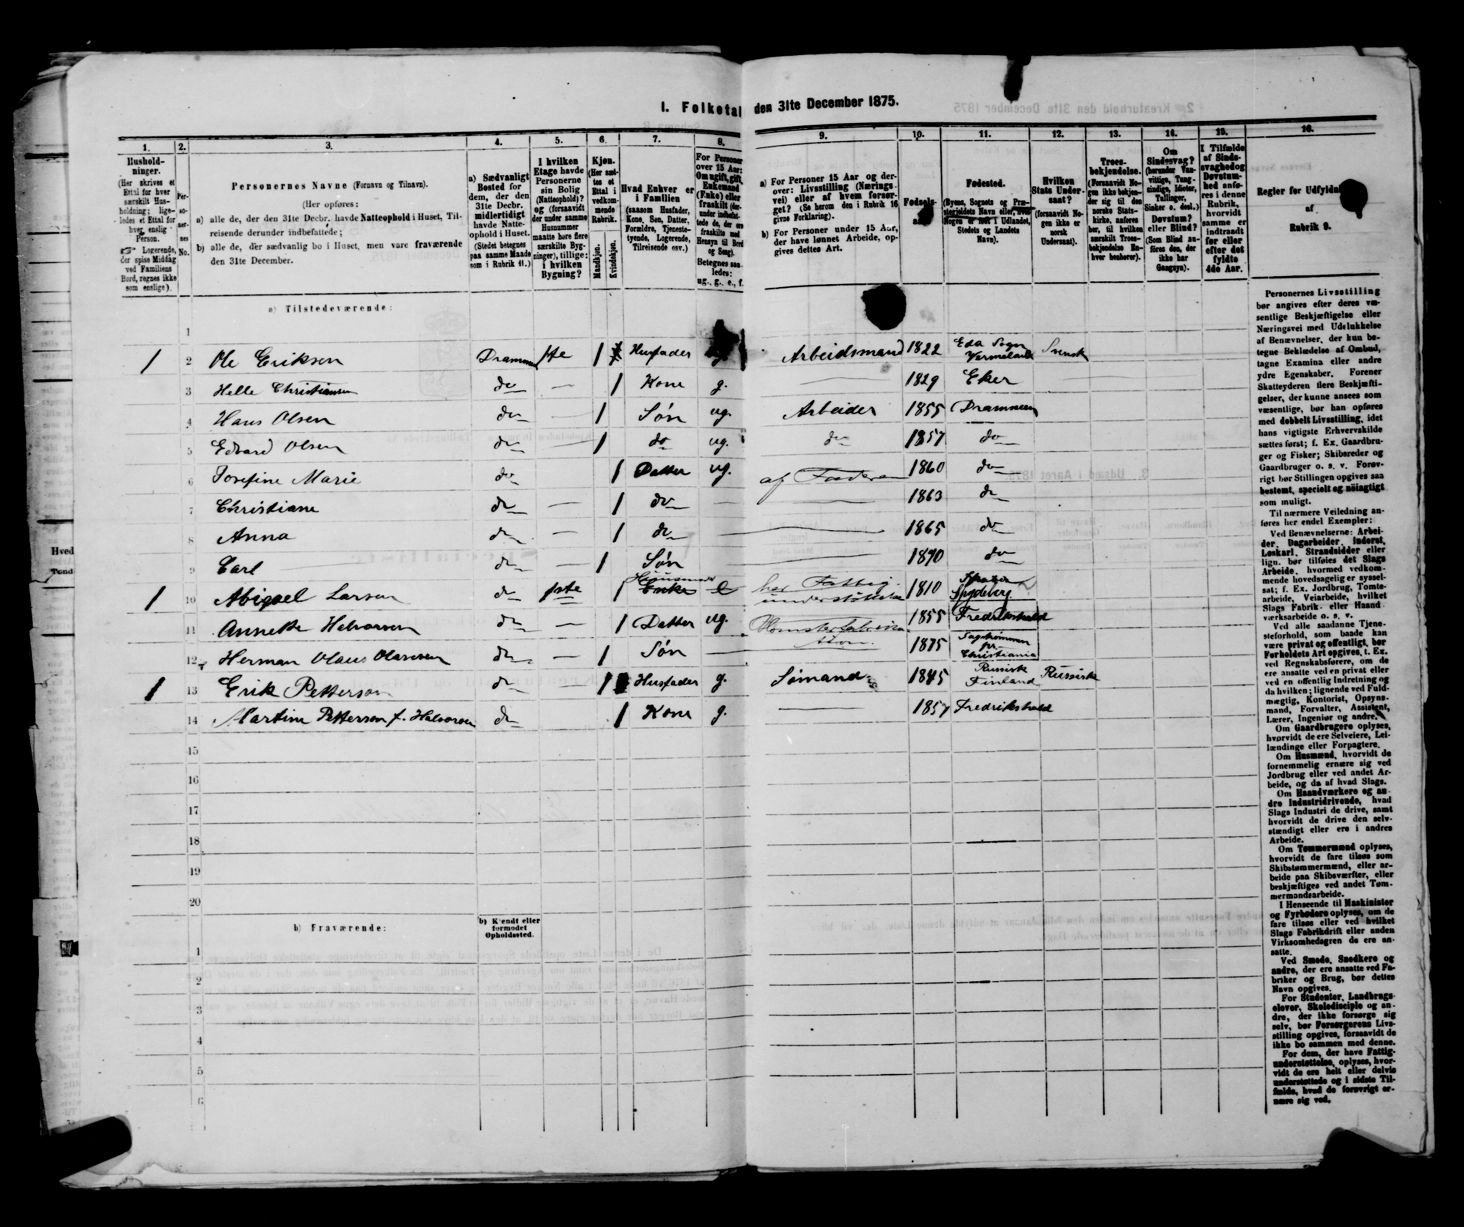 I. Folketal den 31te December 1875.
1. 2. 3. 4. 5. 6. 7. 8. 9. 10. 11. 12. 13. 14. 15. 16.
Hushold-
ninger.
(Her skrives et
Ettal for hver
særskilt Hus-
holdning; lige-
ledes et Ettal for
hver enslig
Person.
Logerende,
der spise Middag
ved Familiens
Bord, regnes ikke
som enslige).
Per-
so-
ner-
nes
No.
Personernes Navne (Fornavn og Tilnavn).
(Her opføres:
a) alle de, der den 31te Decbr. havde Natteophold i Huset, Til-
reisende derunder indbefattede;
b) alle de, der sædvanlig bo i Huset, men vare fraværende
den 31te December.
a) Sædvanligt
Bosted for
dem, der den
31te Decbr.
midlertidigt
havde Natte-
ophold i Huset.
(Stedet betegnes
paa samme Maade
som i Rubrik 11.)
I hvilken
Etage havde
Personerne
sin Bolig
(Natteophold)?
og (forsaavidt
der under samme
Husnummer
maatte høre flere
særskilte Byg-
ninger), tillige:
i hvilken
Bygning?
Kjøn.
(Her sæt-
tes et
Ettal i
vedkom-
mende
Rubrik.
Mandkjøn.
Kvindekjøn.
Hvad Enhver er
i Familien
(saasom Husfader,
Kone, Søn, Datter,
Forældre, Tjeneste-
tyende, Logerende,
Tilreisende osv.)
For Personer
over 15 Aar:
Om ugift, gift,
Enkemand
(Enke) eller
fraskilt
Betegnes saa-
ledes:
ug., g., e., f.
a) For Personer 15 Aar og der-
over: Livsstilling (Nærings-
vei) eller af hvem forsør-
get? (Se herom den i Rubrik 16
givne Forklaring).
b) For Personer under 15 Aar,
der have lønnet Arbeide, op-
gives dettes Art.
Fødsels-
Fødested.
(Byens, Sognets og Præ-
stegjeldets Navn eller, hvis
Nogen er født i Udlandet,
Stedets og Landets
Navn).
Hvilken
Stats Under-
saat?
(forsaavidt No-
gen ikke er
norsk
Undersaat).
Troes-
bekjendelse.
(Forsaavidt No-
gen ikke bekjen-
der sig til den
norske Stats-
kirke, anføres
her, til hvilken
særskilt Troes-
bekjendelse En-
hver henhører).
Om
Sindssvag?
(herunder Van-
vittige, Tung-
sindige, Idioter,
Tullinger,
Sinker o. desl.)
Døvstum?
eller Blind?
(Som Blind an-
føres den, der
ikke har
Gangsyn).
I Tilfælde
af Sinds-
svaghed og
Døvstum-
hed anfø-
res i denne
Rubrik,
hvorvidt
samme er
indtraadt
før eller
efter det
fyldte
4de Aar.
Regler for Udfyldni
af
Rubrik 9.
a) Tilstedeværende:
1
1 2 Ole Eriksen Drammen 1ste 1 Husfader Arbeidsmand 1822 Eda Sogn Vermeland Svensk
3 Helle Christiansen do — 1 Kone g. — 1829 Eker
4 Hans Olsen do — 1 Søn ug. Arbeider 1855 Drammen
5 Edvard Olsen do — 1 do ug. do 1857 do
6 Josefine Marie do 1 Datter ug. af Faderen 1860 do
7 Christiane do — 1 do — 1863 do
8 Anna do — 1 do — 1865 do
9 Carl do — 1 Søn — 1870 do
1 10 Abigael Larsen do 1ste 1 Huusmoder Enke e har Fattig-understøttelse 1810 Spydeberg
11 Annette Halvorsen do — 1 Datter ug. 1855 Fredrikshald
12 Herman Olaus Olavesen do — 1 Søn — 1875 Sagstommen pr. Christiania
1 13 Erik Petterson do — 1 Husfader g. Sømand 1845 Russisk Finland Russisk
14 Martine Petterson f. Halvorsen do 1 Kone g. — 1857 Fredrikshald
15
16
17
18
19
20
b) Fraværende:
b) Kjendt eller
formodet
Opholdssted.
1
2
3
4
5
6
Personernes Livsstilling
bør angives efter deres væ-
sentlige Beskjæftigelse eller
Næringsvei med Udelukkelse
af Benævnelser, der kun be-
tegne Beklædelse af Ombud,
tagne Examina eller andre
ydre Egenskaber. Forener
Skatteyderen flere Beskjæfti-
gelser, der kunne ansees som
væsentlige, bør han opføres
med dobbelt Livsstilling, idet
hans vigtigste Erhvervskilde
sættes først; f. Ex. Gaardbru-
ger og Fisker; Skibsreder og
Gaardbruger o. s. v. Forøv-
rigt bør Stillingen opgives saa
bestemt, specielt og nøiagtigt
som muligt.
Til nærmere Veiledning an-
føres her endel Exempler:
Ved Benævnelserne: Arbei-
der, Dagarbeider, Inderst,
Løskarl, Strandsidder eller
lign. bør tilføies det Slags
Arbeide, hvormed vedkom-
mende hovedsagelig er syssel-
sat; f. Ex. Jordbrug, Tomte-
arbeide, Veiarbeide, hvilket
Slags Fabrik- eller Haand-
værksarbeide o. s. v.
Ved alle saadanne Tjene-
steforhold, som baade kan
være privat og offentligt, bør
Forholdets Art opgives, f. Ex.
ved Regnskabsførere, om de
ere ansatte ved en privat eller
ved en offentlig Indretning og
da hvilken; lignende ved Fuld-
mægtig, Kontorist, Opsyns-
mand, Forvalter, Assistent,
Lærer, Ingeniør og andre.
Om Gaardbrugere oplyses,
hvorvidt de ere Selveiere, Lei-
lændinge eller Forpagtere.
Om Husmænd, hvorvidt de
fornemmelig ernære sig ved
Jordbrug eller ved andet Ar-
beide, og da af hvad Slags.
Om Haandværkere og an-
dre Industridrivende, hvad
Slags Industri de drive, samt
hvorvidt de drive den selv-
stændigt eller ere i andres
Arbeide.
Om Tømmermænd oplyses,
hvorvidt de fare tilsøs som
Skibstømmermænd, eller ar-
beide paa Skibsværfter, eller
beskjæftiges ved andet Tøm-
mermandsarbeide.
I Henseende til Maskinister
og Fyrbødere oplyses, om de
fare tilsøs eller ved hvilket
Slags Fabrikdrift eller anden
Virksomhedsgren de ere an-
satte.
Ved Smede, Snedkere og
andre, der ere ansatte ved Fa-
briker og Brug, bør dettes
Navn opgives.
For Studenter, Landbrugs-
elever, Skoledisciple og an-
dre, der ikke forsørge sig
selv, bør Forsørgerens Livs-
stilling opgives, forsaavidt de
ikke bo sammen med denne.
For dem, der have Fattig-
understøttelse, oplyses, hvor-
vidt de ere helt eller delvis
understøttede og i sidste Til-
fælde, hvad de forøvrigt er-
nære sig ved.
Hved